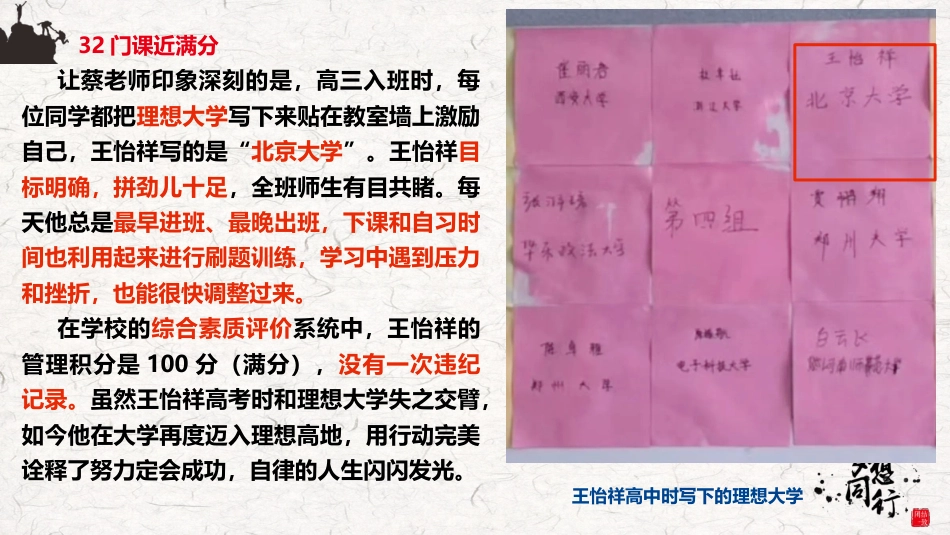 32 门课近满分
让蔡老师印象深刻的是，高三入班时，每
位同学都把理想大学写下来贴在教室墙上激励
自己，王怡祥写的是“北京大学”。王怡祥目
标明确，拼劲儿十足，全班师生有目共睹。每
天他总是最早进班、最晚出班，下课和自习时
间也利用起来进行刷题训练，学习中遇到压力
和挫折，也能很快调整过来。
在学校的综合素质评价系统中，王怡祥的
管理积分是 100 分（满分），没有一次违纪
记录。虽然王怡祥高考时和理想大学失之交臂，
如今他在大学再度迈入理想高地，用行动完美
诠释了努力定会成功，自律的人生闪闪发光。
崔丽君
西安大学
浙江大学
王怡祥
北京大学
华东政法大学
第四组
贾博翔
郑州大学
郑州大学
电子科技大学
白云飞
王怡祥高中时写下的理想大学
同行